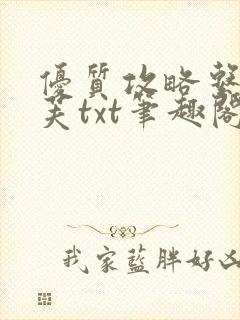 優質攻略
芙txt筆趣閣
我家藍胖好凶